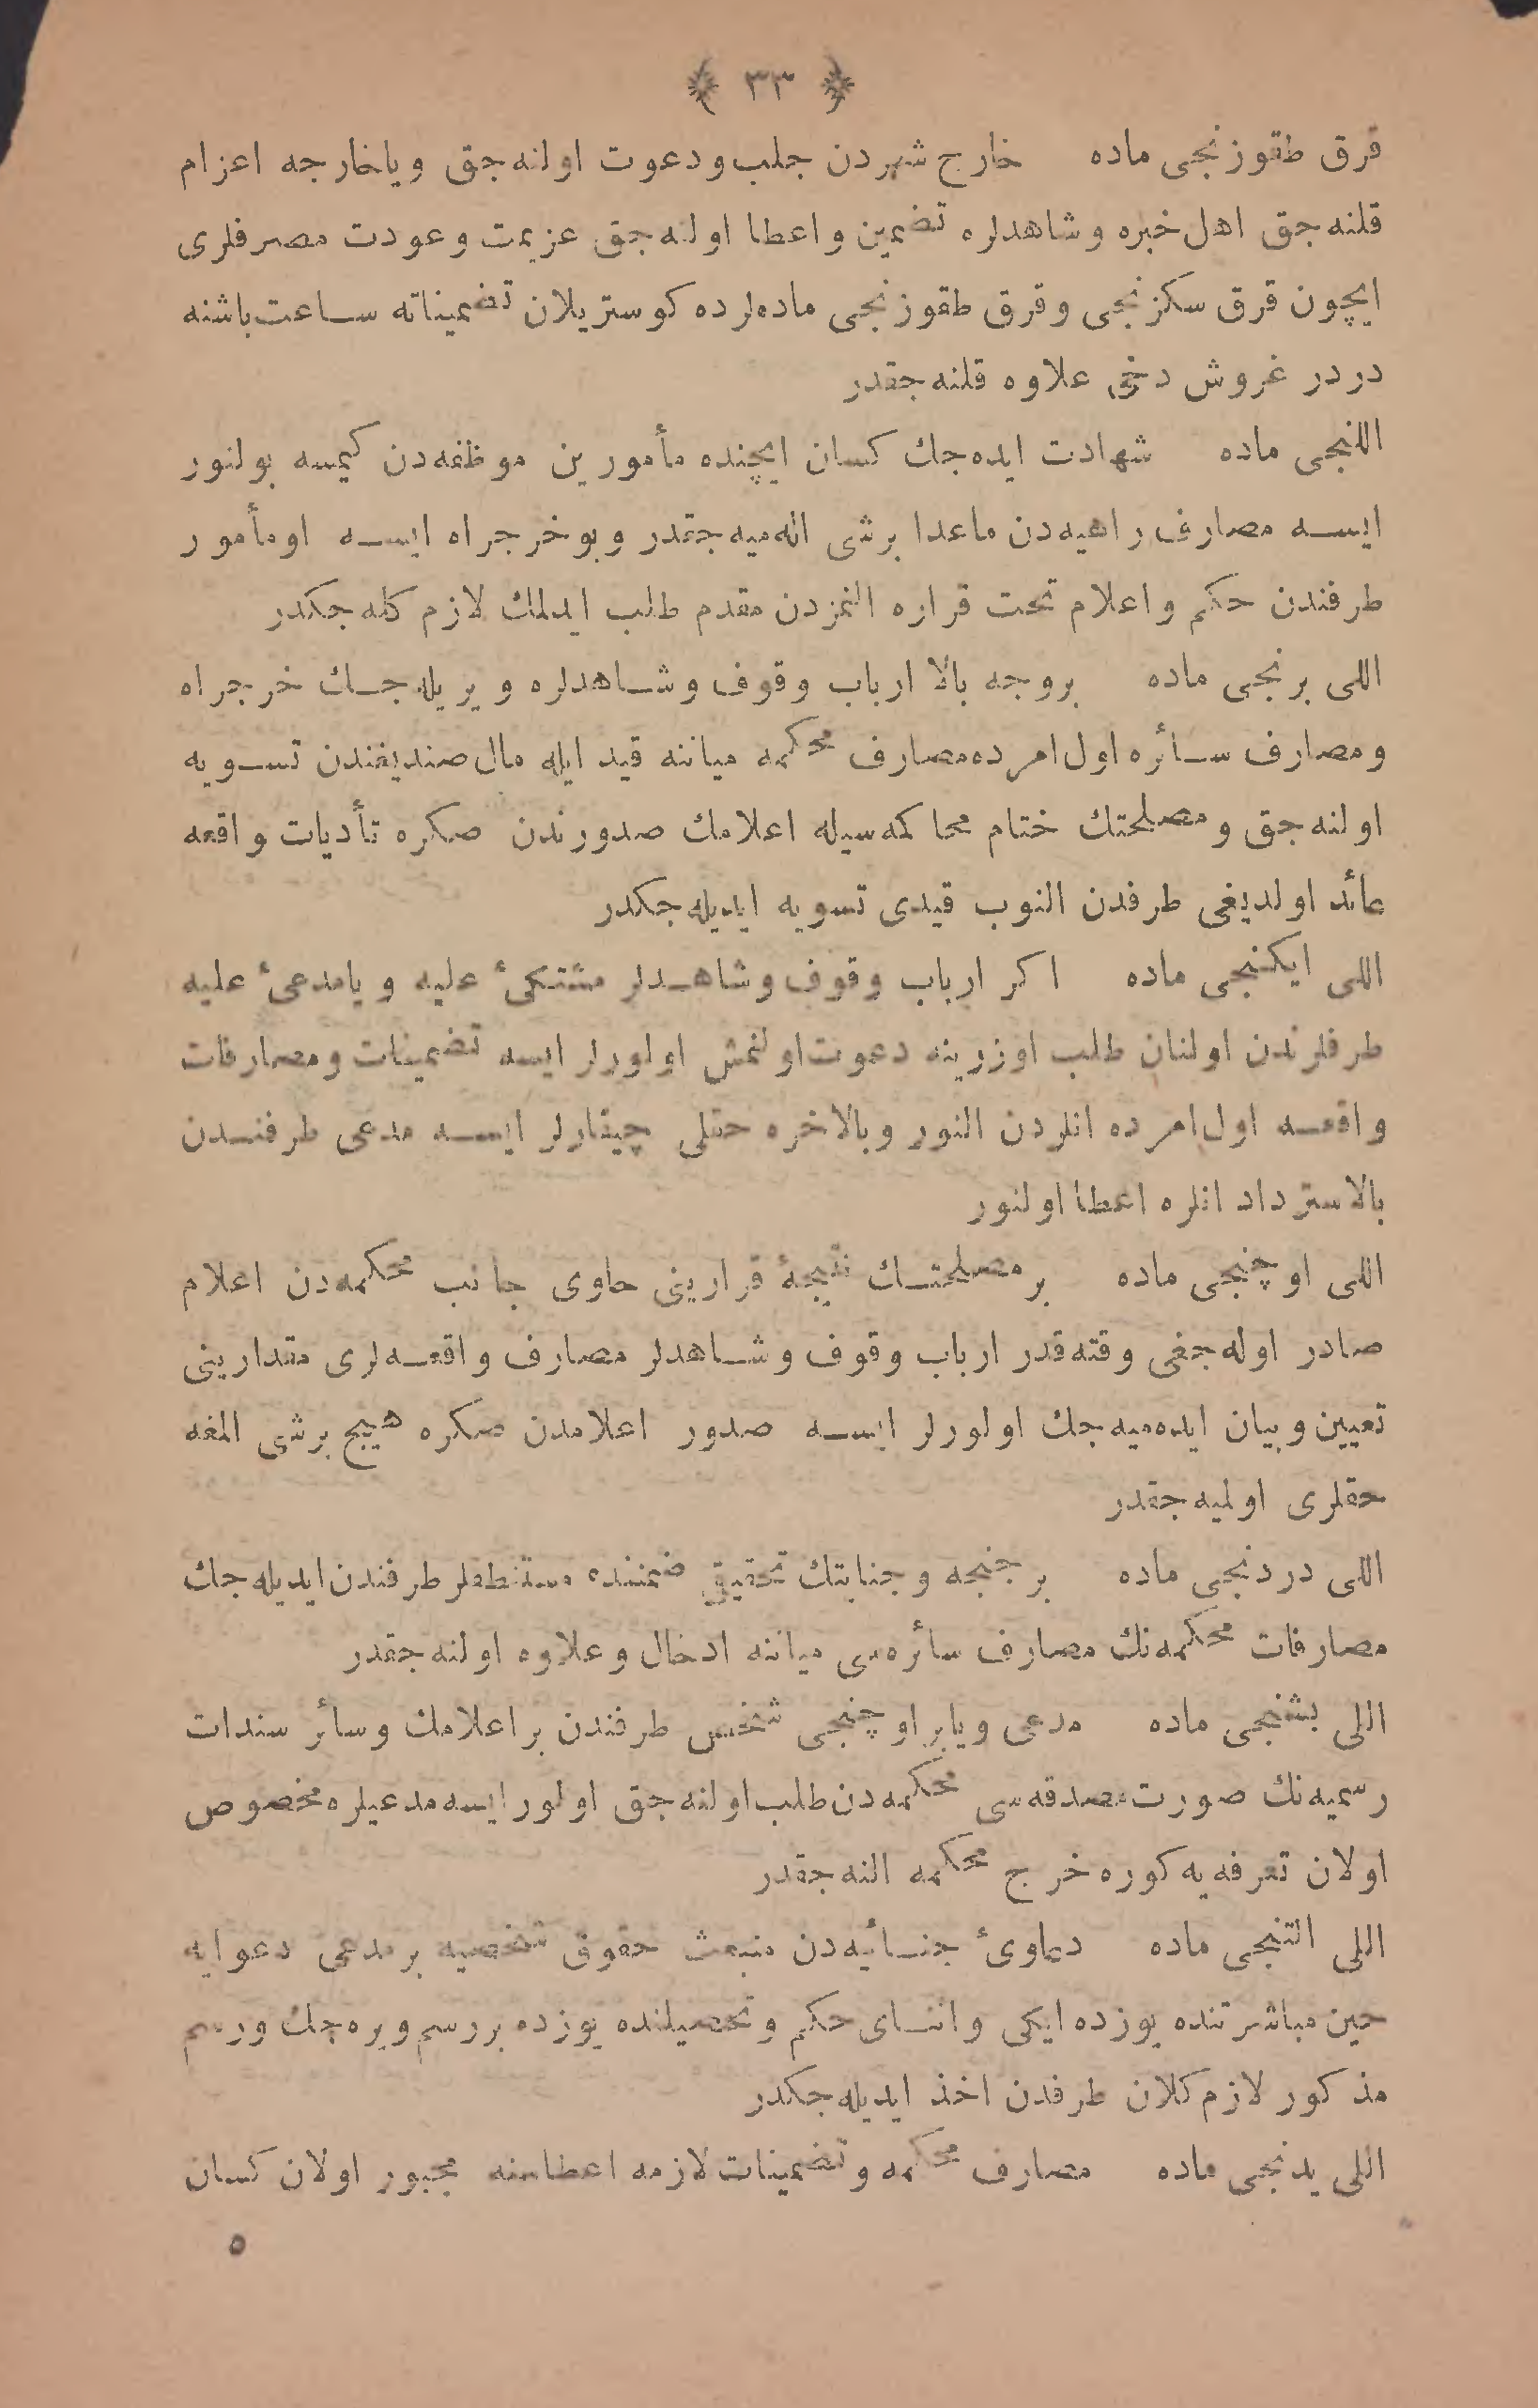 ﴿ ٣٣ ﴾
قرق طقوزنجی ماده خارج شهردن جلب ودعوت اولنه‌جق ویاخارجه اعزام
قلنه‌جق اهل خبره وشاهدلره تضمین واعطا اولنه‌جق عزیمت وعودت مصرفلری
ایچون قرق سکزنجی وقرق طقوزنجی ماده‌لرده کوستریلان تضمیناته ساعت باشنه
دردر غروش دخی علاوه قلنه‌جقدر
اللنجی ماده شهادت ایده‌جك کسان ایچنده مأمورین موظفه‌دن کیمسه بولنور
ایسه مصارف راهیه‌دن ماعدا برشی اله‌میه‌جقدر وبو خرجراه ایسه اومأمور
طرفندن حکم واعلام تحت قراره النمزدن مقدم طلب ایدلمك لازم کله‌جکدر
اللی برنجی ماده بروجه بالا ارباب وقوف وشاهدلره ویریله‌جك خرجراه
ومصارف سائره اول‌امرده مصارف محکمه میاننه قید ایله مال صندیغندن تسویه
اولنه‌جق ومصلحتك ختام محاکمه‌سیله اعلامك صدورندن صکره تأدیات واقعه
عائد اولدیغی طرفدن النوب قیدی تسویه ایدیله‌جکدر
اللی ایکنجی ماده اکر ارباب وقوف وشاهدلر مشتکیٔ علیه ویامدعیٔ علیه
طرفلرندن اولنان طلب اوزرینه دعوت‌اولنمش اولورلر ایسه تضمینات ومصارفات
واقعه اول‌امرده انلردن النور وبالاخره حقلی چیقارلر ایسه مدعی طرفندن
بالاسترداد انلره اعطا اولنور
اللی اوچنجی ماده بر مصلحتك نتیجهٔ قرارینی حاوی جانب محکمه‌دن اعلام
صادر اوله‌جغی وقته‌قدر ارباب وقوف وشاهدلر مصارف واقعه‌لری مقدارینی
تعیین وبیان ایده‌میه‌جك اولورلر ایسه صدور اعلامدن صکره هیچ برشی المغه
حقلری اولمیه‌جقدر
اللی دردنجی ماده بر جنحه وجنایتك تحقیق ضمننده مستنطقلر طرفندن ایدیله‌جك
مصارفات محکمه‌نك مصارف سائره‌سی میاننه ادخال وعلاوه اولنه‌جقدر
اللی بشنجی ماده مدعی ویابر اوچنجی شخص طرفندن بر اعلامك وسائر سندات
رسمیه‌نك صورت مصدقه‌سی محکمه‌دن طلب اولنه‌جق اولور ایسه مدعیلره مخصوص
اولان تعرفه‌یه کوره خرج محکمه النه‌جقدر
اللی التنجی ماده دعاویٔ جنائیه‌دن منبعث حقوق شخصیه بر مدعی دعوایه
حین مباشرتنده یوزده ایکی واثنای حکم وتحصیلنده یوزده بر رسم ویره‌جك ورسم
مذکور لازم کلان طرفدن اخذ ایدیله‌جکدر
اللی یدنجی ماده مصارف محکمه وتضمینات لازمه اعطاسنه مجبور اولان کسان
٥